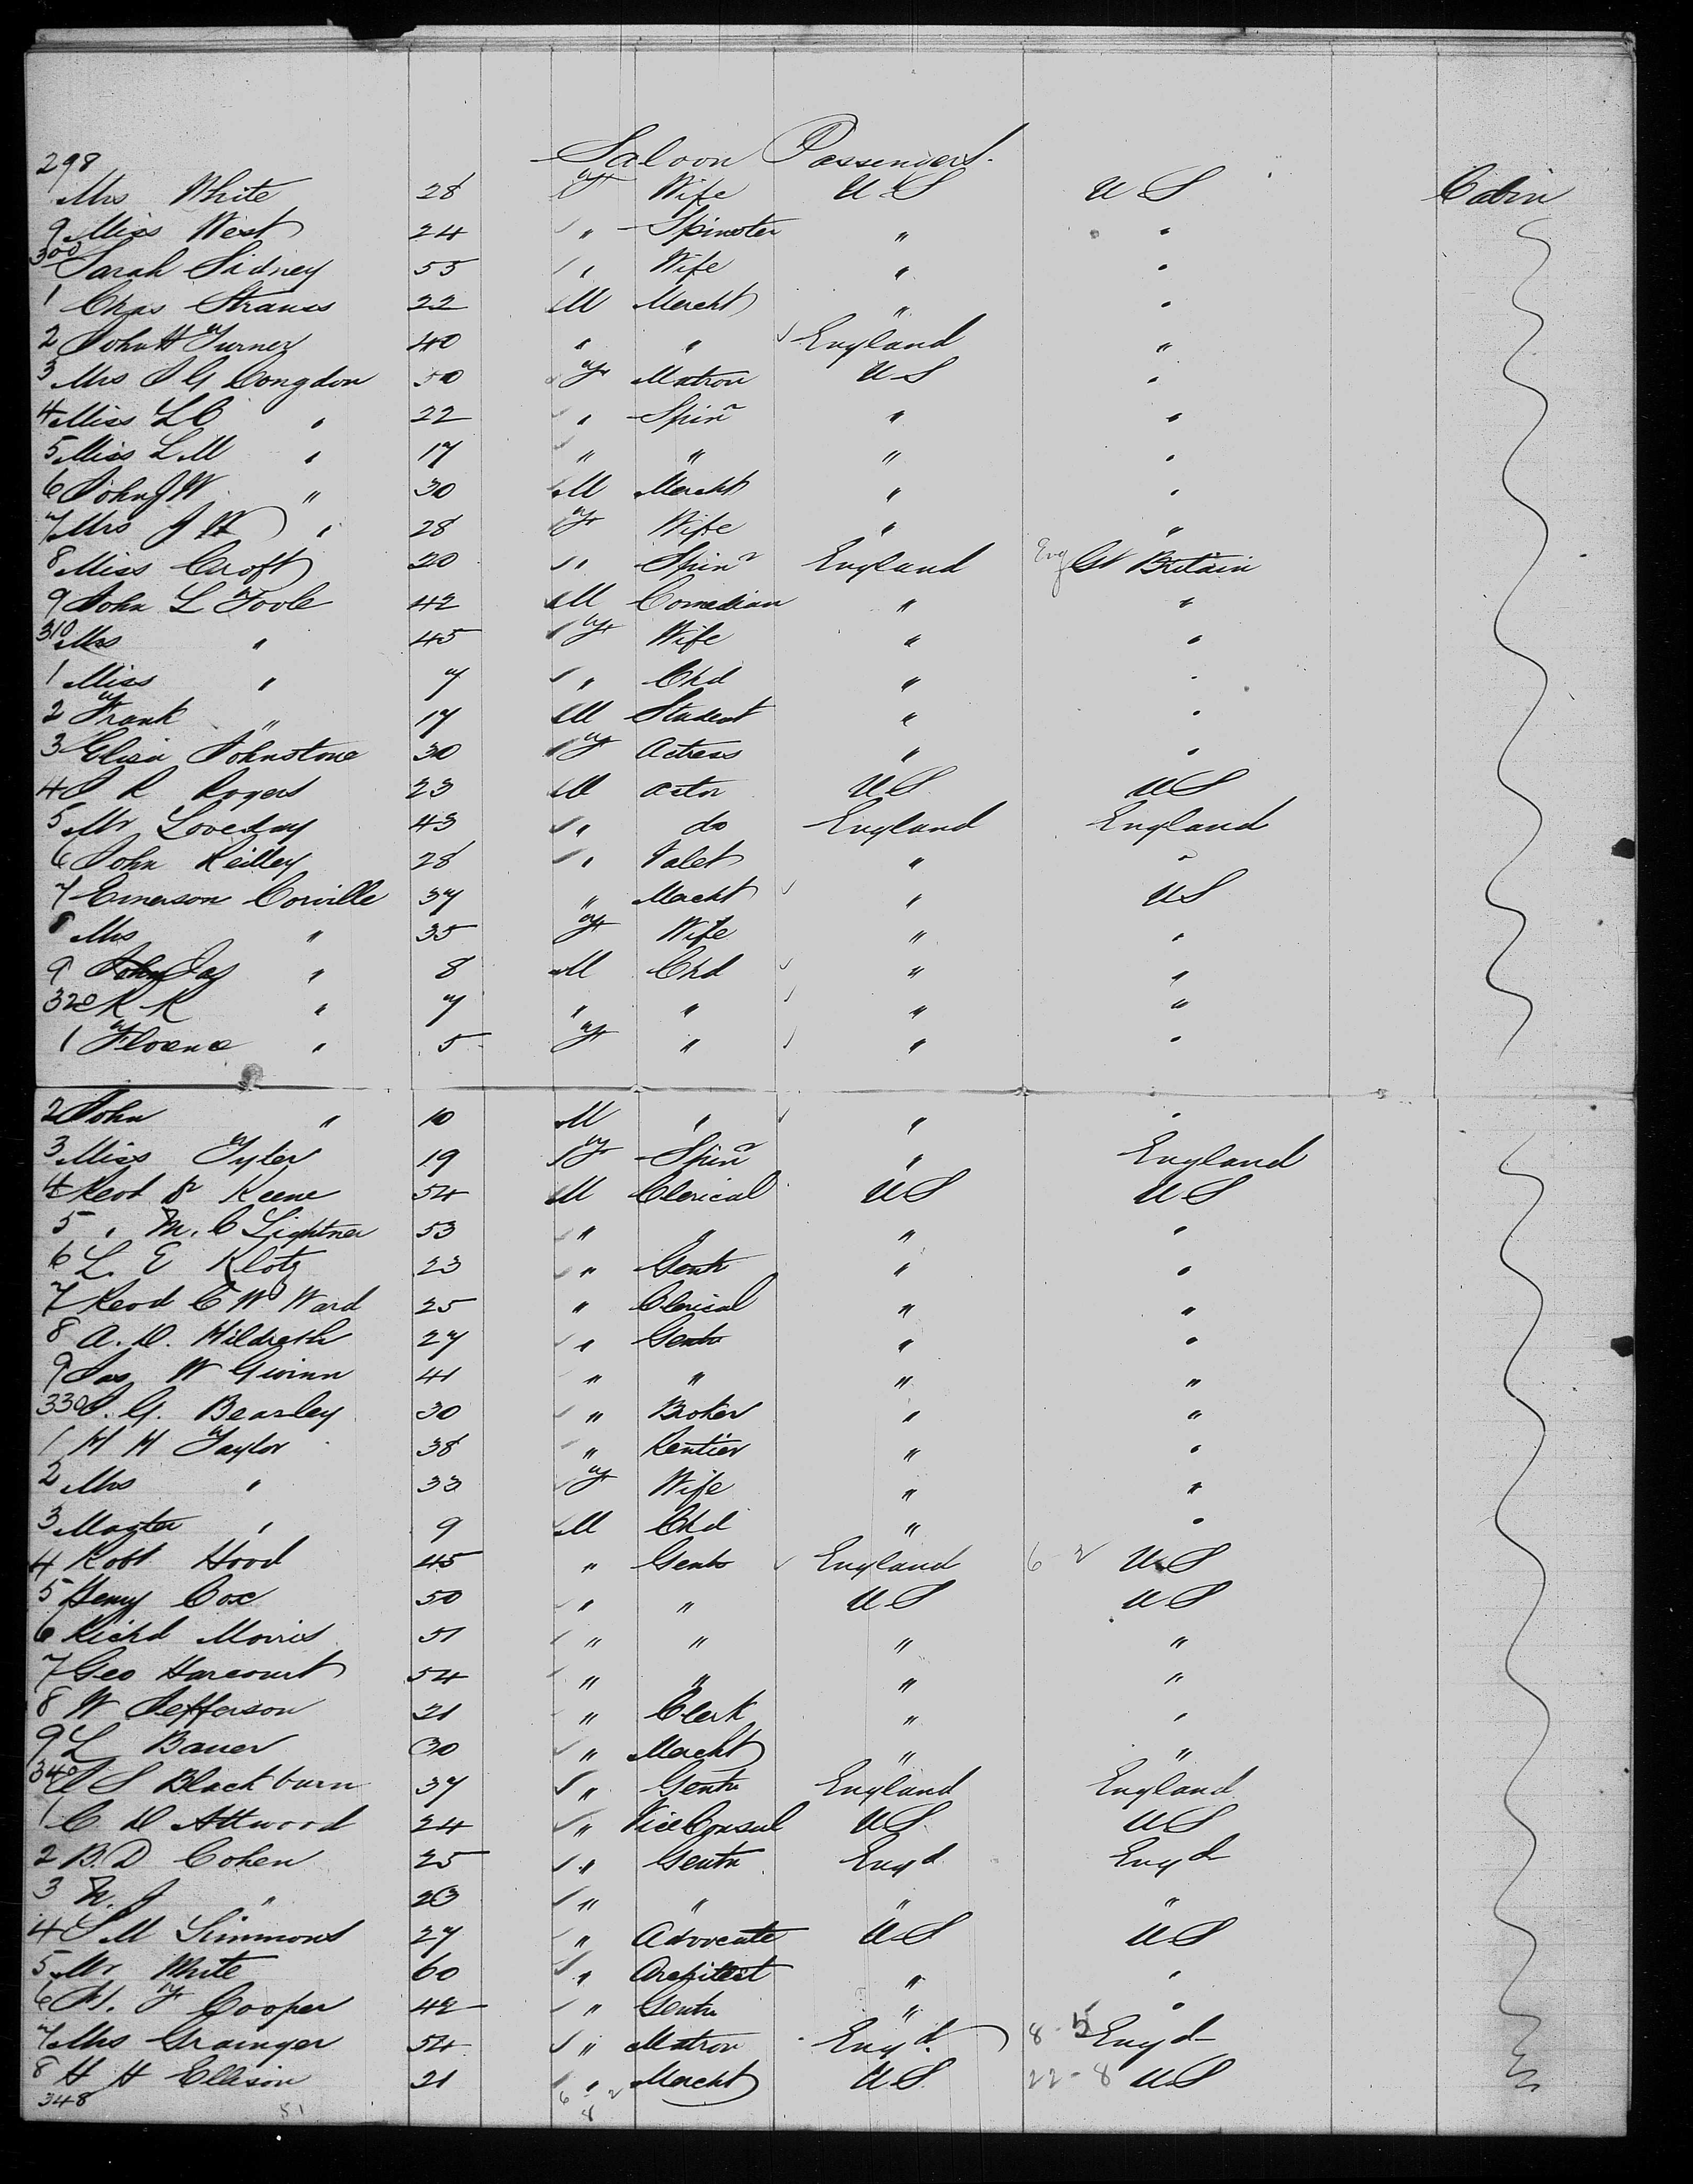 Saloon Passengers.
298 Mrs White 28 F Wife U S U S Cabin
9 Miss West 24 " Spinster " "
300 Sarah Sidney 55 " Wife " "
1 Chas Strauss 22 M Mercht " "
2 John H Turner 40 " " England "
3 Mrs J G Congdon 50 F Matron U S "
4 Miss L C " 22 " Spinr " "
5 Miss L M " 17 " " " "
6 John J W " 30 M Mercht " "
7 Mrs J W " 28 F Wife " "
8 Miss Croft 20 " Spinr England Eng Gt Britain
9 John L Toole 42 M Comedian " "
310 Mrs " 45 F Wife " "
1 Miss " 7 " Chd " "
2 Frank " 17 M Student " "
3 Eliza Johnstone 30 F Actress " "
4 J R Rogers 23 M actor U S U S
5 Mr Loveday 43 " do England England
6 John Reilley 28 " Valet " "
7 Emerson Corville 37 " Mercht " U S
8 Mrs " 35 F Wife " "
9 Jas " 8 M Chd " "
320 R R " 7 " " " "
1 Florence " 5 F " " "
2 John " 10 M " " "
3 Miss Tyler 19 F Spinr " England
4 Revd Dr Keene 54 M Clerical U S U S
5 " M. C Lightner 53 " " " "
6 L. E Klotz 23 " Gentn " "
7 Revd C W Ward 25 " Clerical " "
8 A. D. Hildreth 27 " Gentn " "
9 Jas W Gwinn 41 " " " "
330 J. G. Bearley 30 " Broker " "
1 H H Taylor 38 " Rentier " "
2 Mrs " 33 F Wife " "
3 Master " 9 M Chd " "
4 Robt Hood 45 " Gentn England 6 2 U S
5 Henry Cox 50 " " U S U S
6 Richd Morris 51 " " " "
7 Geo Harcourt 54 " " " "
8 W Jefferson 21 " Clerk " "
9 L Bauer 30 " Mercht " "
340 S Blackburn 37 " Gentn England England
1 C D Attwood 24 " Vice Consul U S U S
2 B. D Cohen 25 " Gentn Engd Engd
3 N. J " 23 " " " "
4 S M Simmons 27 " Advocate U S U S
5 Mr White 60 " Architect " "
6 H. F Cooper 42 " Gentn " "
7 Mrs Grainger 54 " Matron Engd. 8 - 5 Engd
8 H H Ellison 21 " Mercht U S 22 - 8 U S
348 51 6 2 8